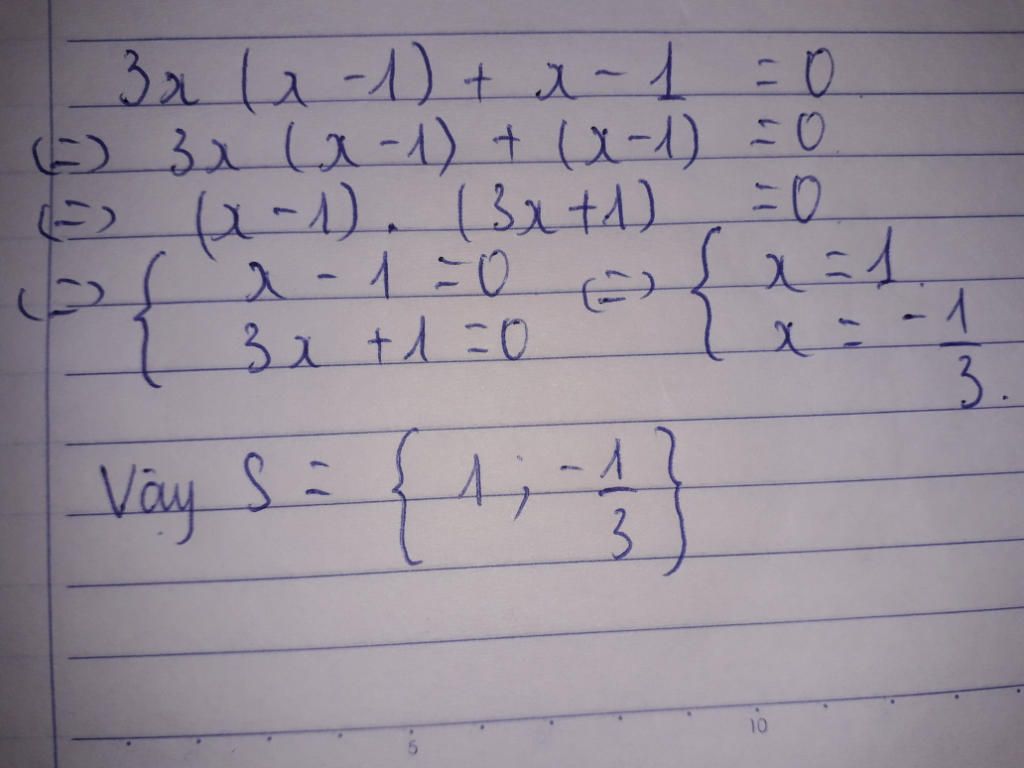 3x (x - 1) + x - 1 = 0
(=) 3x (x - 1) + (x - 1) = 0
(=) (x - 1) . (3x + 1) = 0
(=) { x - 1 = 0 (=) { x = 1
3x + 1 = 0 x = -1/3.
Vậy S = { 1 ; -1/3 }
5 10